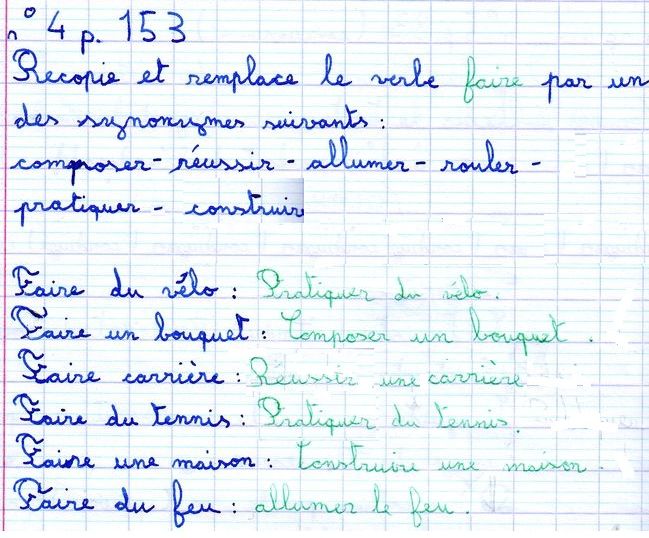 n° 4 p. 153
Recopie et remplace le verbe faire par un
des synonymes suivants :
composer - réussir - allumer - rouler -
pratiquer - construire
Faire du vélo : Pratiquer du vélo.
Faire un bouquet : Composer un bouquet.
Faire carrière : Réussir une carrière
Faire du tennis : Pratiquer du tennis.
Faire une maison : Construire une maison.
Faire du feu : allumer le feu.